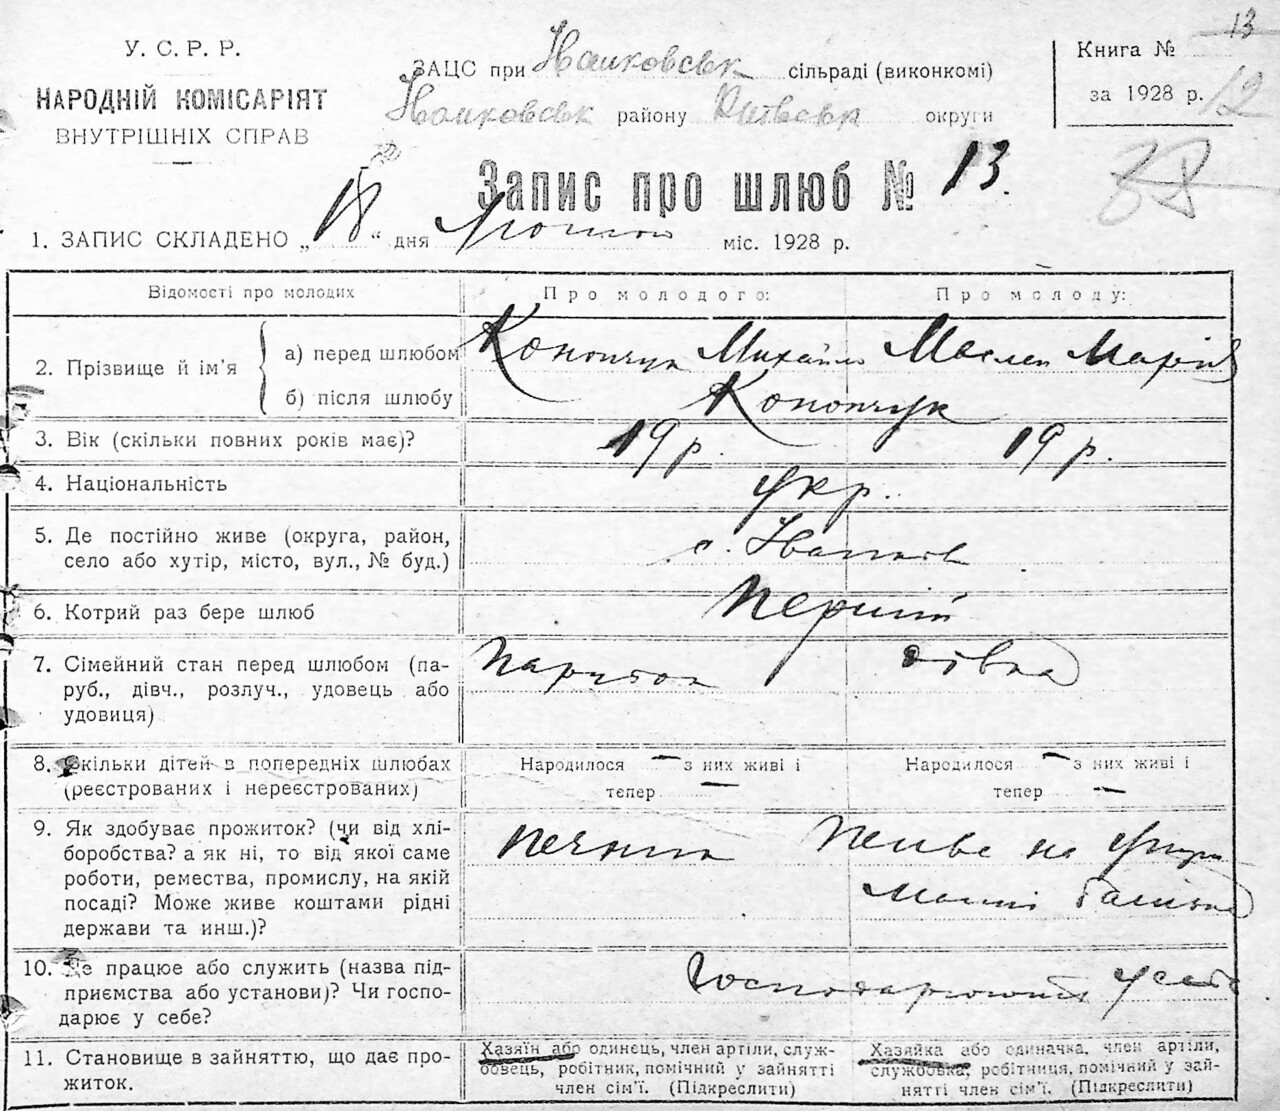 У. С. Р. Р.
НАРОДНІЙ КОМІСАРІЯТ
ВНУТРІШНІХ СПРАВ
ЗАЦС при Іванковськ сільраді (виконкомі)
Іванковськ району Київськ округи
Книга № 13
за 1928 р. 12
38
Запис про шлюб № 13.
1. ЗАПИС СКЛАДЕНО „18“ дня Лютого міс. 1928 р.
Відомості про молодих
Про молодого:
Про молоду:
2. Прізвище й ім'я
а) перед шлюбом
Конончук Михайло
Маслен Марія
б) після шлюбу
Конончук
3. Вік (скільки повних років має)?
19 р.
19 р.
4. Національність
укр.
5. Де постійно живе (округа, район,
село або хутір, місто, вул., № буд.)
с. Іванків
6. Котрий раз бере шлюб
Перший
7. Сімейний стан перед шлюбом (па-
руб., дівч., розлуч., удовець або
удовиця)
Парубок
дівка
8. Скільки дітей в попередніх шлюбах
(реєстрованих і нереєстрованих)
Народилося — з них живі і
тепер —
Народилося — з них живі і
тепер —
9. Як здобуває прожиток? (чи від хлі-
боробства? а як ні, то від якої саме
роботи, ремества, промислу, на якій
посаді? Може живе коштами рідні
держави та инш.)?
печник
Живе на утри
манні батьків
10. Де працює або служить (назва під-
приємства або установи)? Чи госпо-
дарює у себе?
Господарюють у себе
11. Становище в зайняттю, що дає про-
житок.
Хазяїн або одинець, член артіли, служ-
бовець, робітник, помічний у зайнятті
член сім'ї. (Підкреслити)
Хазяйка або одиначка, член артіли,
службовка, робітниця, помічний у зай-
нятті член сім'ї. (Підкреслити)